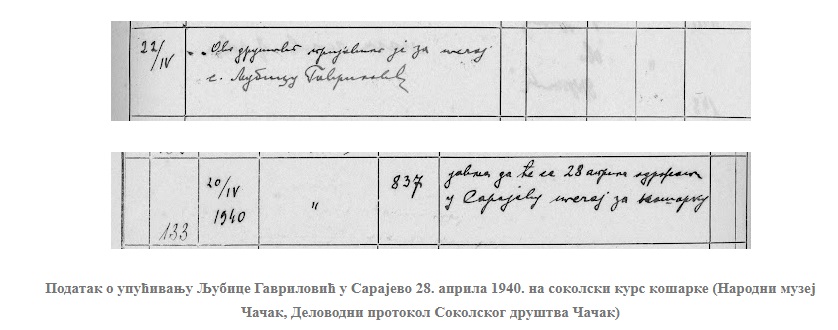 22/IV Ово друштво пријавило је за течај
с. Љубицу Гавриловић
20/IV 837 јавља да ће се 28 априла одржати
133 1940 " у Сарајеву течај за кошарку
Податак о упућивању Љубице Гавриловић у Сарајево 28. априла 1940. на соколски курс кошарке (Народни музеј
Чачак, Деловодни протокол Соколског друштва Чачак)